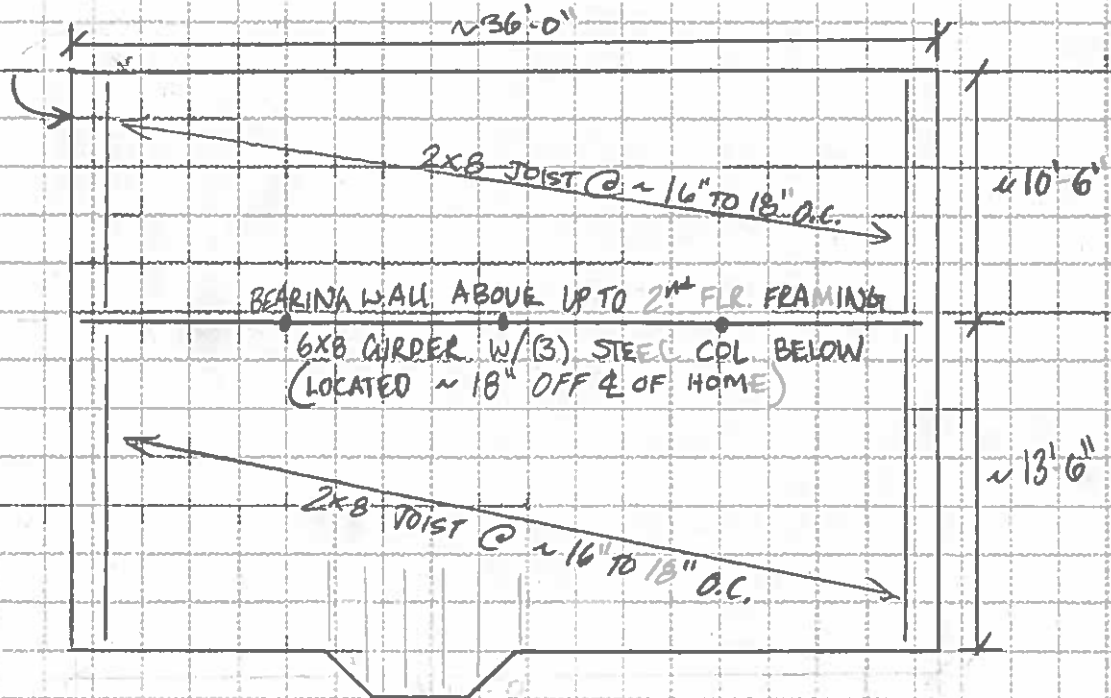 ~36'-0"
2x8 JOIST @ ~ 16" TO 18" O.C.
~10'-6"
BEARING WALL ABOVE UP TO 2nd FLR. FRAMING
6x8 GIRDER W/(3) STEEL COL BELOW
(LOCATED ~ 18" OFF ℄ OF HOME)
~13'-6"
2x8 JOIST @ ~ 16" TO 18" O.C.